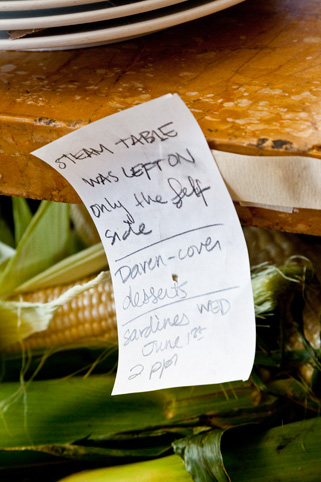 STEAM TABLE
WAS LEFT ON
only the left
side
Daven-cover
desserts
sardines WED
June 1st
2 ppl